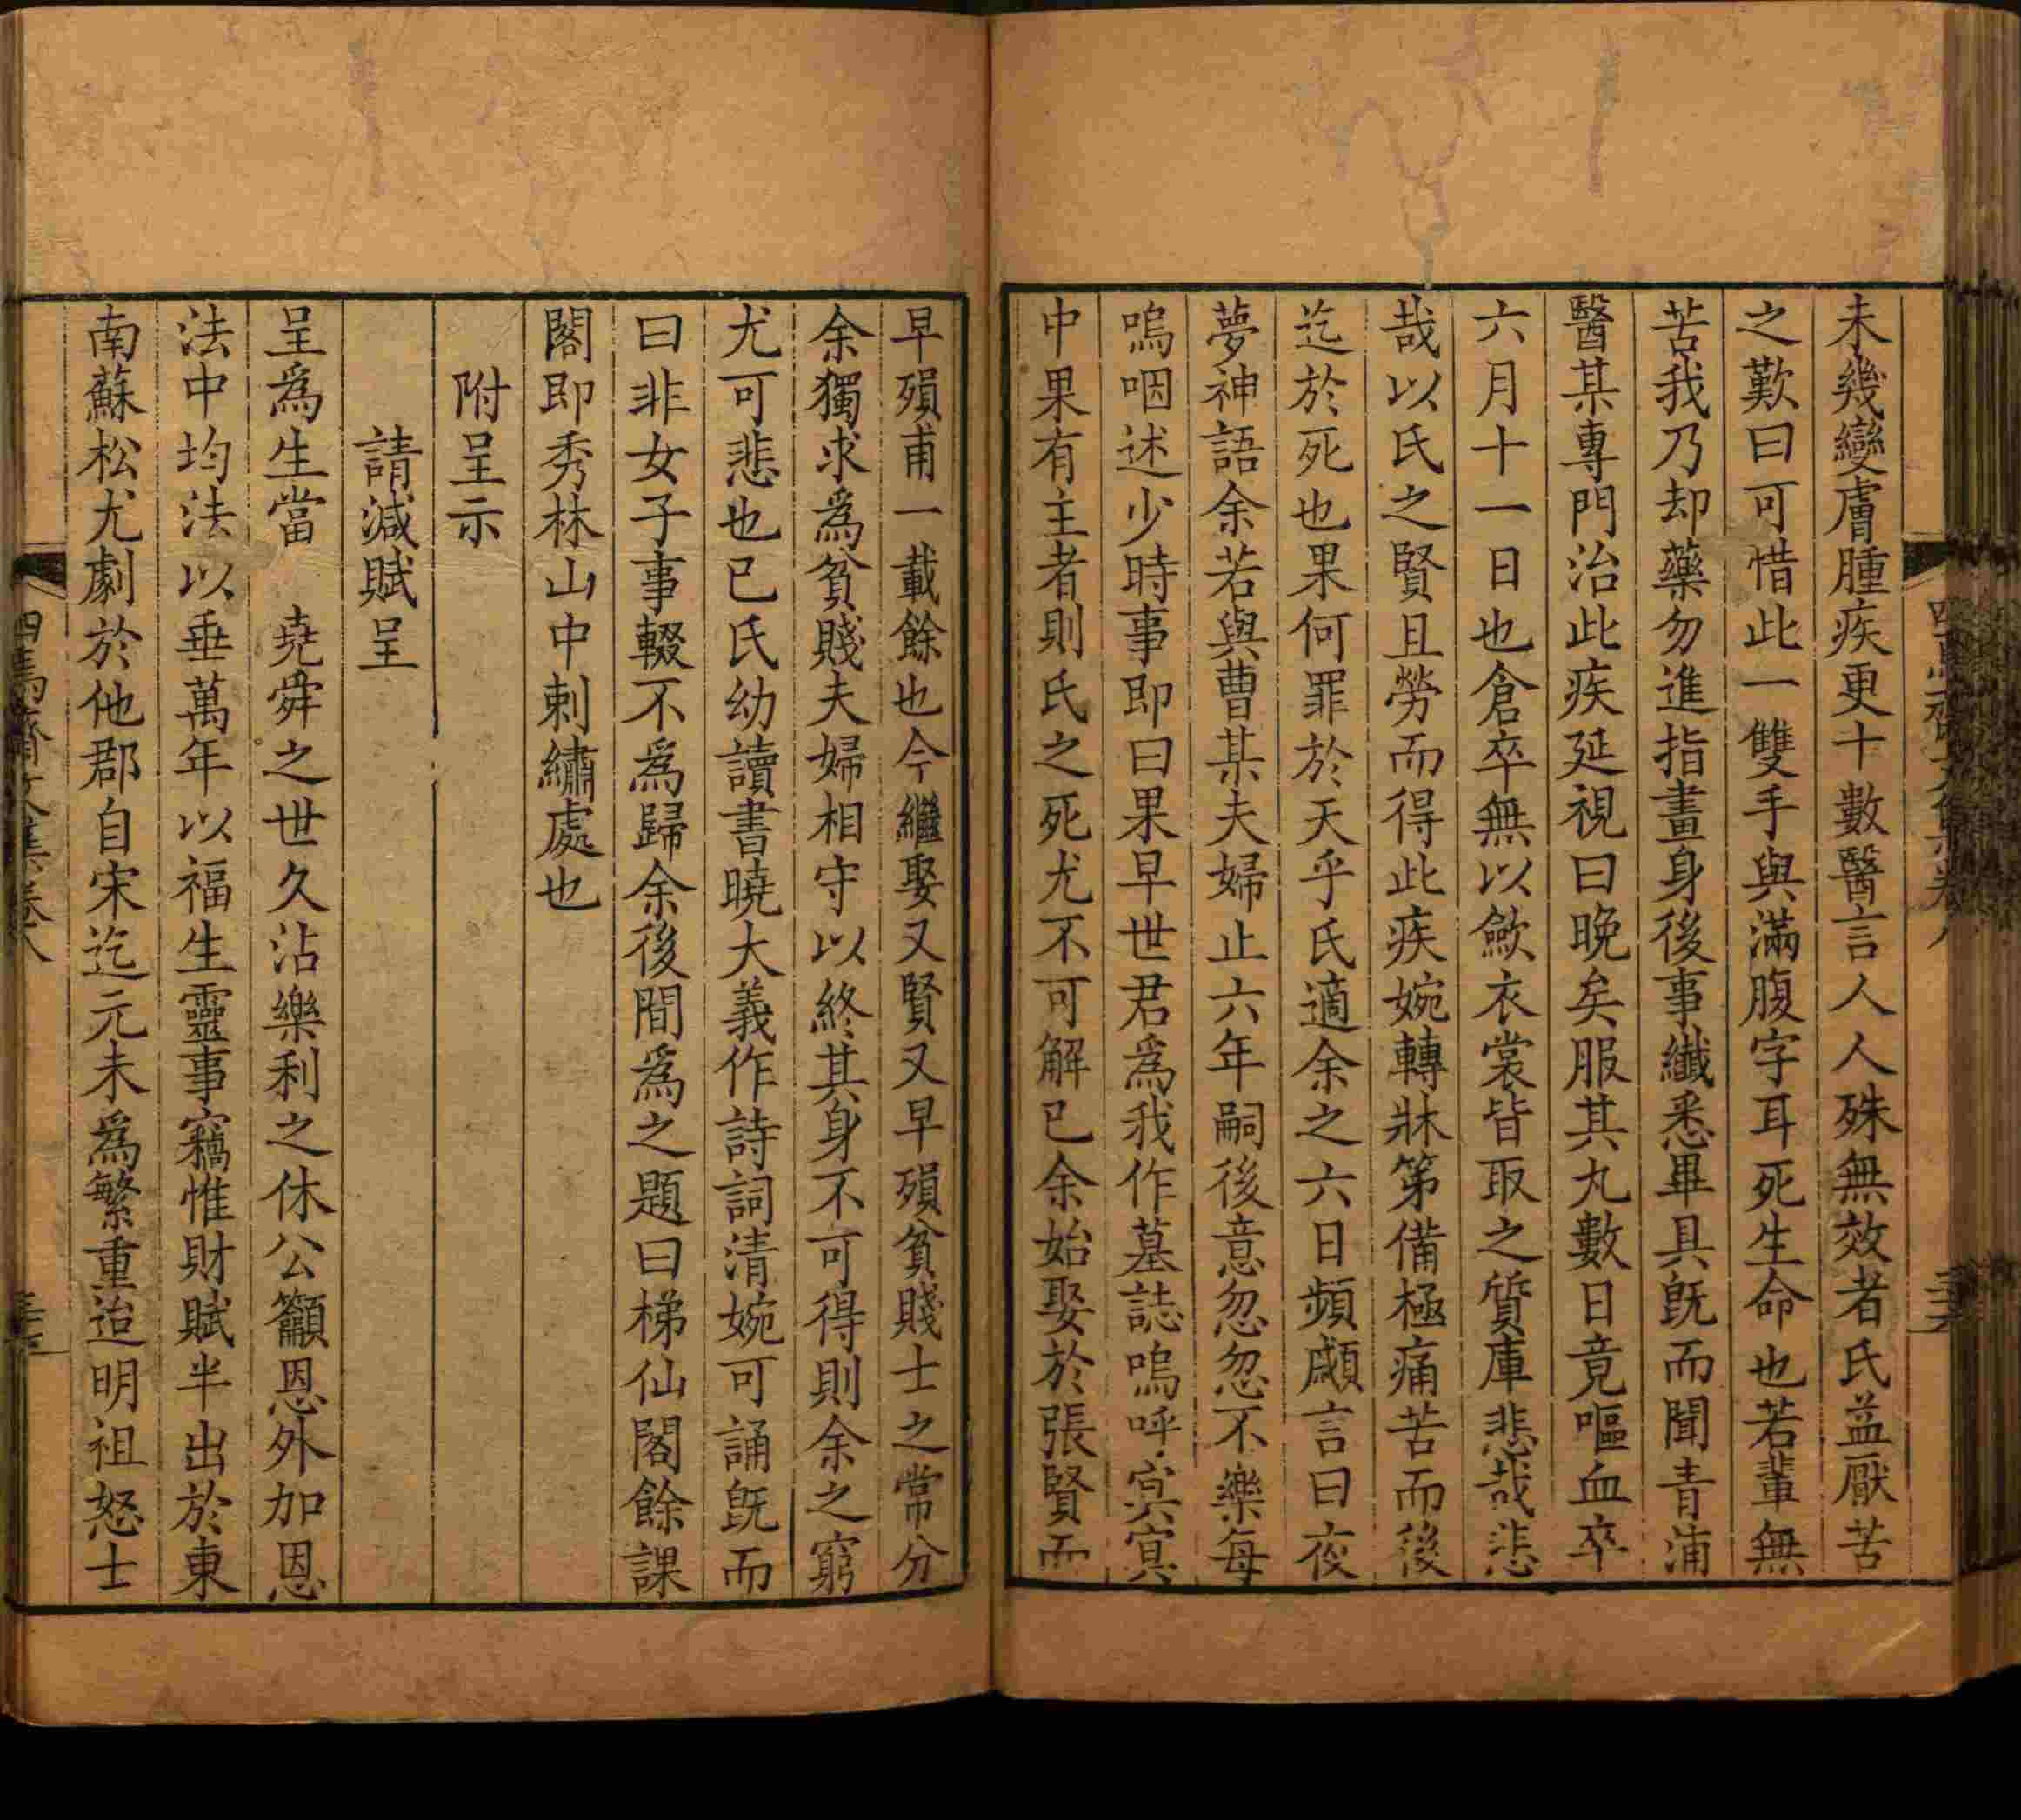 未幾變膚腫疾更十數醫言人人殊無效者氏益厭苦
之歎曰可惜此一雙手與滿腹字耳死生命也若輩無
苦我乃却藥勿進指畫身後事纖悉畢具旣而聞青浦
醫某專門治此疾延視曰晚矣服其丸數日竟嘔血卒
六月十一日也倉卒無以歛衣裳皆取之質庫悲哉悲
哉以氏之賢且勞而得此疾婉轉牀第備極痛苦而後
迄於死也果何罪於天乎氏適余之六日頻顣言曰夜
夢神語余若與曹某夫婦止六年嗣後意忽忽不樂每
嗚咽述少時事即曰果早世君爲我作墓誌嗚呼冥冥
中果有主者則氏之死尤不可解已余始娶於張賢而
早殞甫一載餘也今繼娶又賢又早殞貧賤士之常分
余獨求爲貧賤夫婦相守以終其身不可得則余之窮
尤可悲也已氏幼讀書曉大義作詩詞清婉可誦旣而
曰非女子事輟不爲歸余後間爲之題曰梯仙閣餘課
閣即秀林山中刺繡處也
附呈示
請減賦呈
呈爲生當　堯舜之世久沾樂利之休公籲恩外加恩
法中均法以垂萬年以福生靈事竊惟財賦半出於東
南蘇松尤劇於他郡自宋迄元未爲繁重迨明祖怒士